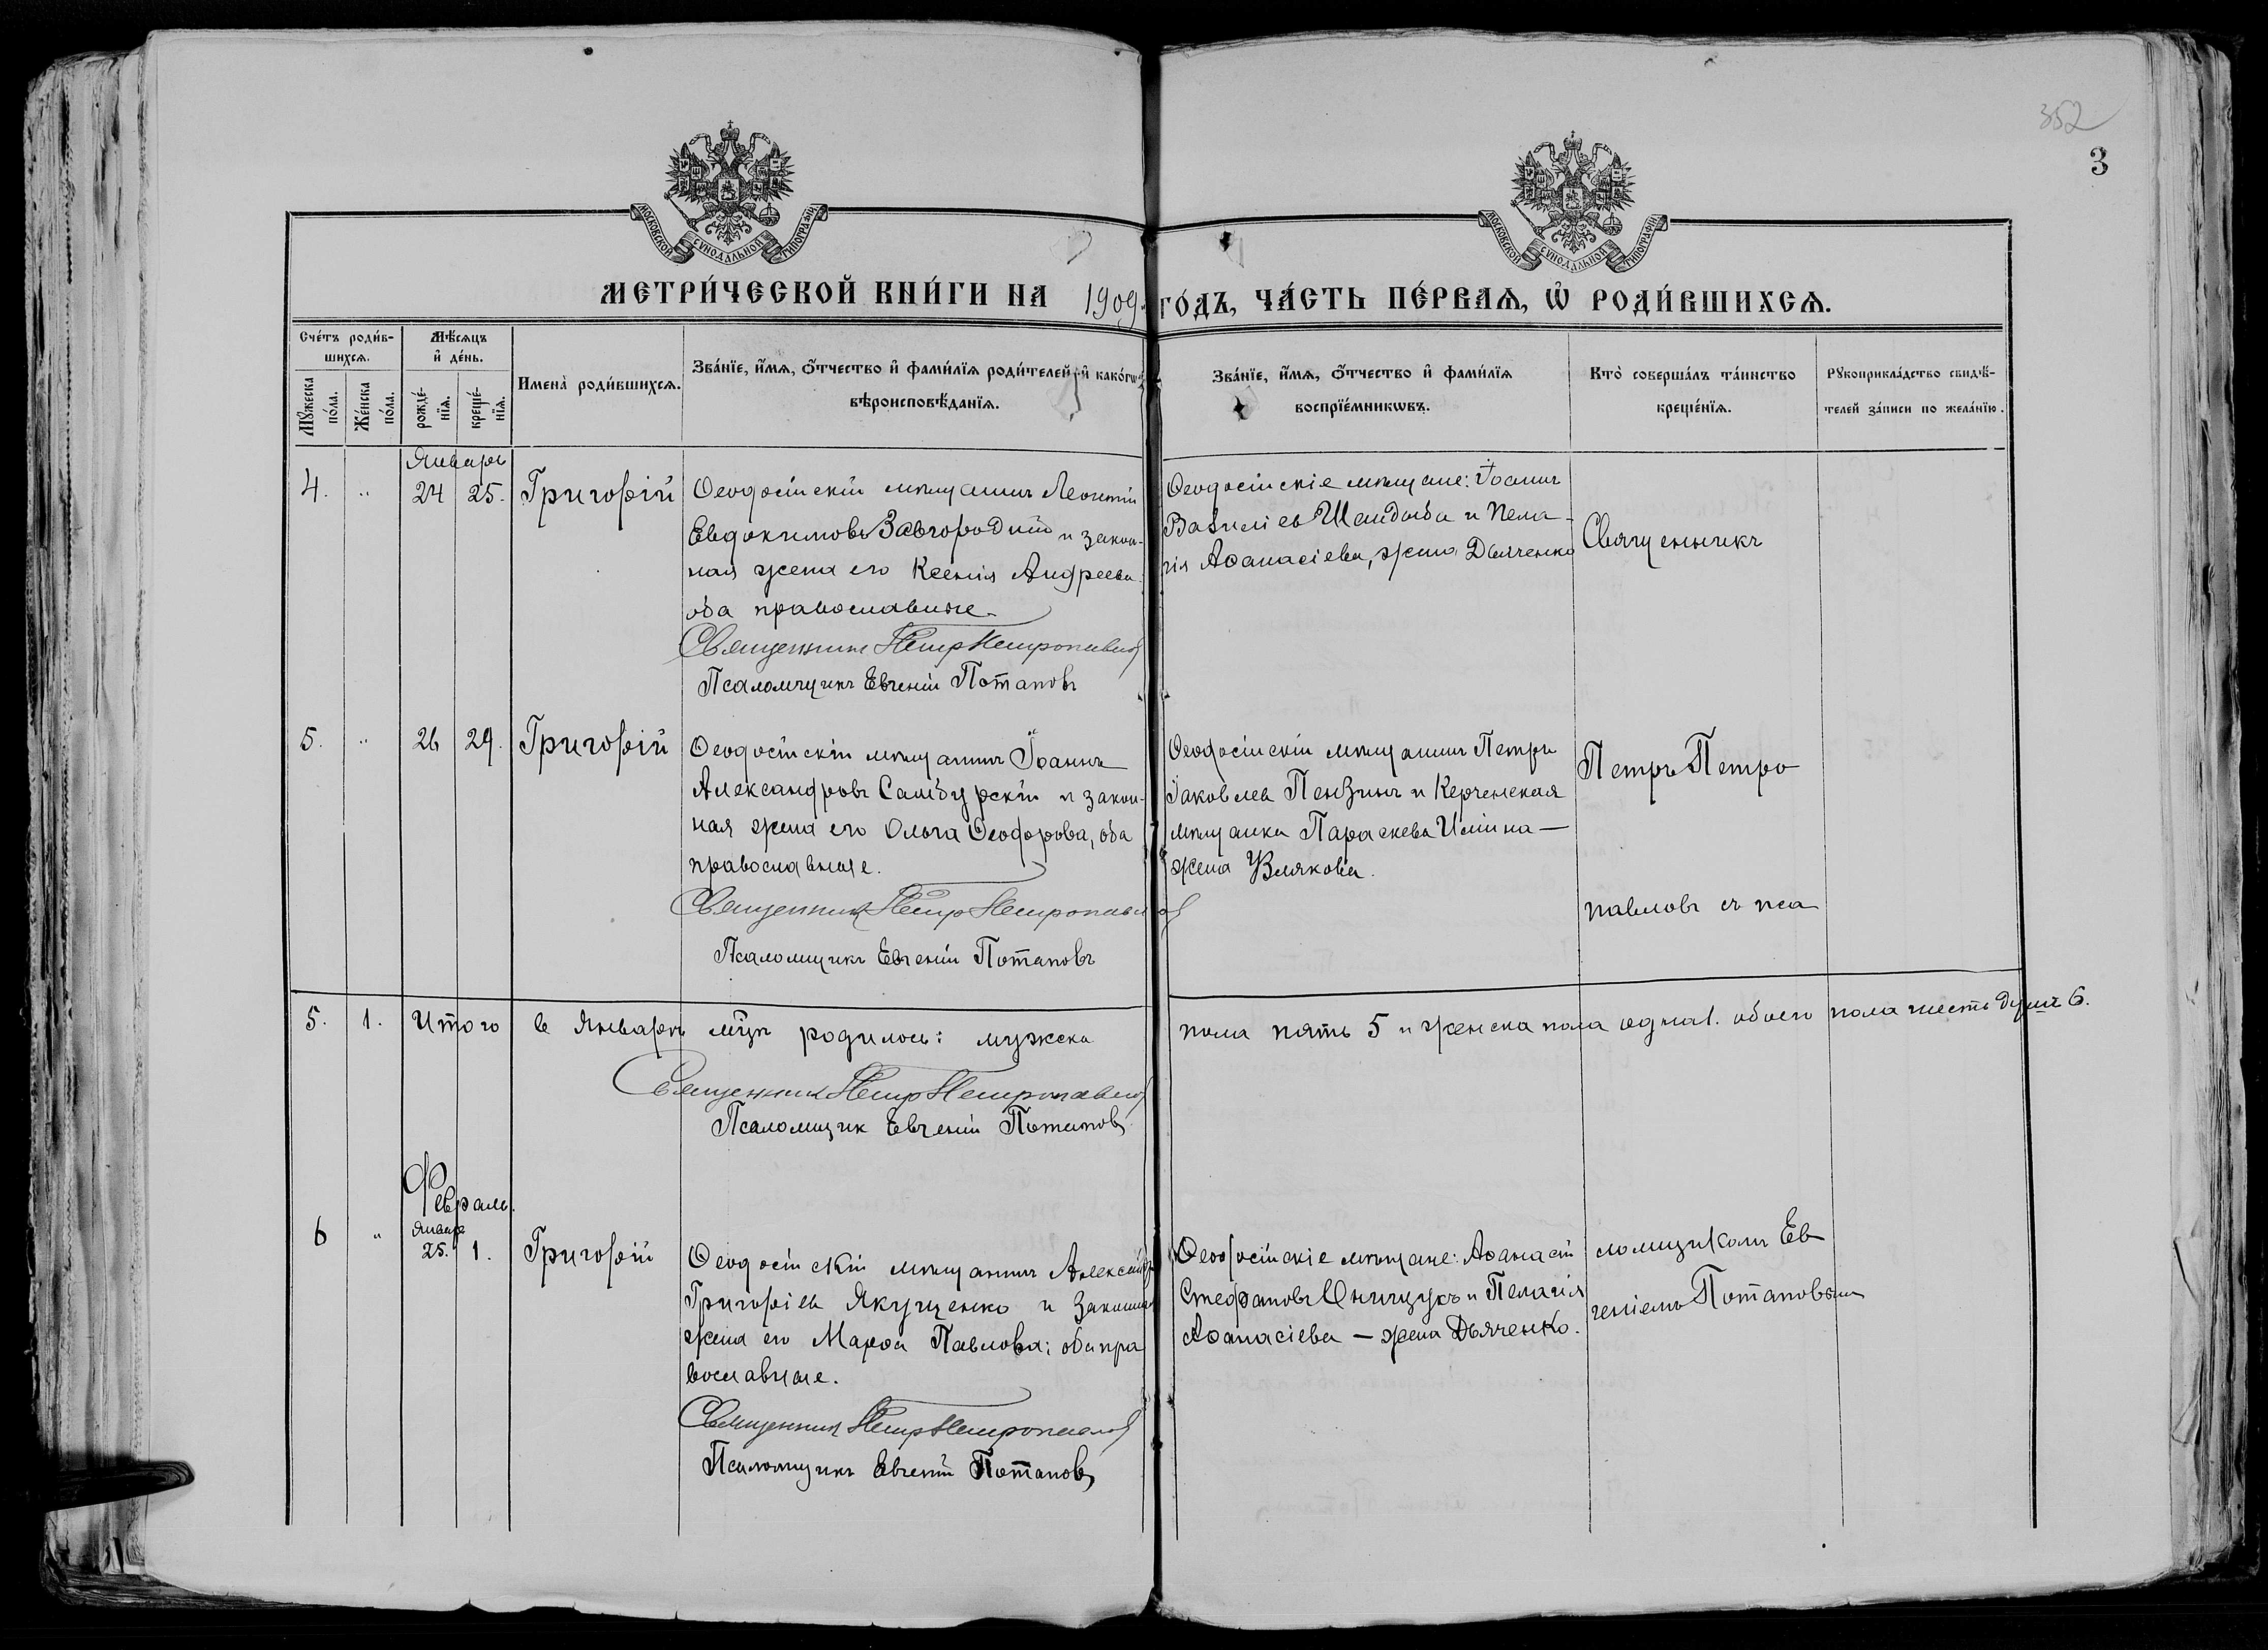 352
3
МОСКОВСКОЙ СѴНОДАЛЬНОЙ ТИПОГРАФІИ
МОСКОВСКОЙ СѴНОДАЛЬНОЙ ТИПОГРАФІИ
МЕТРИ́ЧЕСКОЙ КНИ́ГИ НА 1909 ГО́ДЪ, ЧА́СТЬ ПЕ́РВАѦ, Ѡ҆ РОДИ́ВШИХСѦ.
Сче́тъ роди́в-
шихсѧ.
Мꙋ́жеска по́ла.
Же́нска по́ла.
Мѣ́сѧцъ
и҆ де́нь.
рожде́-нїѧ.
креще́-нїѧ.
Имена̀ роди́вшихсѧ.
Зва́нїе, и҆́мѧ, ѻ҆́тчество и҆ фами́лїѧ роди́телей, и҆ како́гѡ
вѣроисповѣ́данїѧ.
Зва́нїе, и҆́мѧ, ѻ҆́тчество и҆ фами́лїѧ
воспрїе́мникѡвъ.
Кто̀ соверша́лъ та́инство
креще́нїѧ.
Рꙋкоприкла́дство свидѣ́-
телей за́писи по жела́нїю.
Январь
4. " 24 25. Григорій
Ѳеодосійскій мѣщанинъ Леонтій
Евдокимовъ Завгородній и закон-
ная жена его Ксенія Андреева
оба православные.
Священник Петр Петропавлов
Псаломщикъ Евгеній Потаповъ
Ѳеодосійскіе мѣщане: Іоаннъ
Василіев Шандыба и Пела-
гія Аѳанасіева, жена Дьяченко
Священникъ
5. " 26 29. Григорій
Ѳеодосійскій мѣщанинъ Іоаннъ
Александровъ Самбурскій и закон-
ная жена его Ольга Ѳеодорова, оба
православные.
Священник Петр Петропавлов
Псаломщикъ Евгеній Потаповъ
Ѳеодосійскій мѣщанинъ Петръ
Іаковлев Пензинъ и Керченская
мѣщанка Параскева Ильина —
жена
Петръ Петро
павловъ съ пса
5. 1. Итого в Январѣ м-цѣ родилось: мужска
пола пять 5 и женска пола одна 1. обоего пола шесть душъ 6.
Священник Петр Петропавлов
Псаломщик Евгеній Потапов
Февраль.
Январь
6 " 25. 1. Григорій
Ѳеодосійскій мѣщанинъ Александръ
Григоріев Якущенко и законная
жена его Марѳа Павлова; оба пра
вославные.
Священник Петр Петропавлов
Псаломщикъ Евгеній Потапов
Ѳеодосійскіе мѣщане: Аѳанасій
Стефановъ Онищукъ и Пелагія
Аѳанасіева — жена Дьяченко.
ломщикомъ Ев
геніемъ Потаповымъ